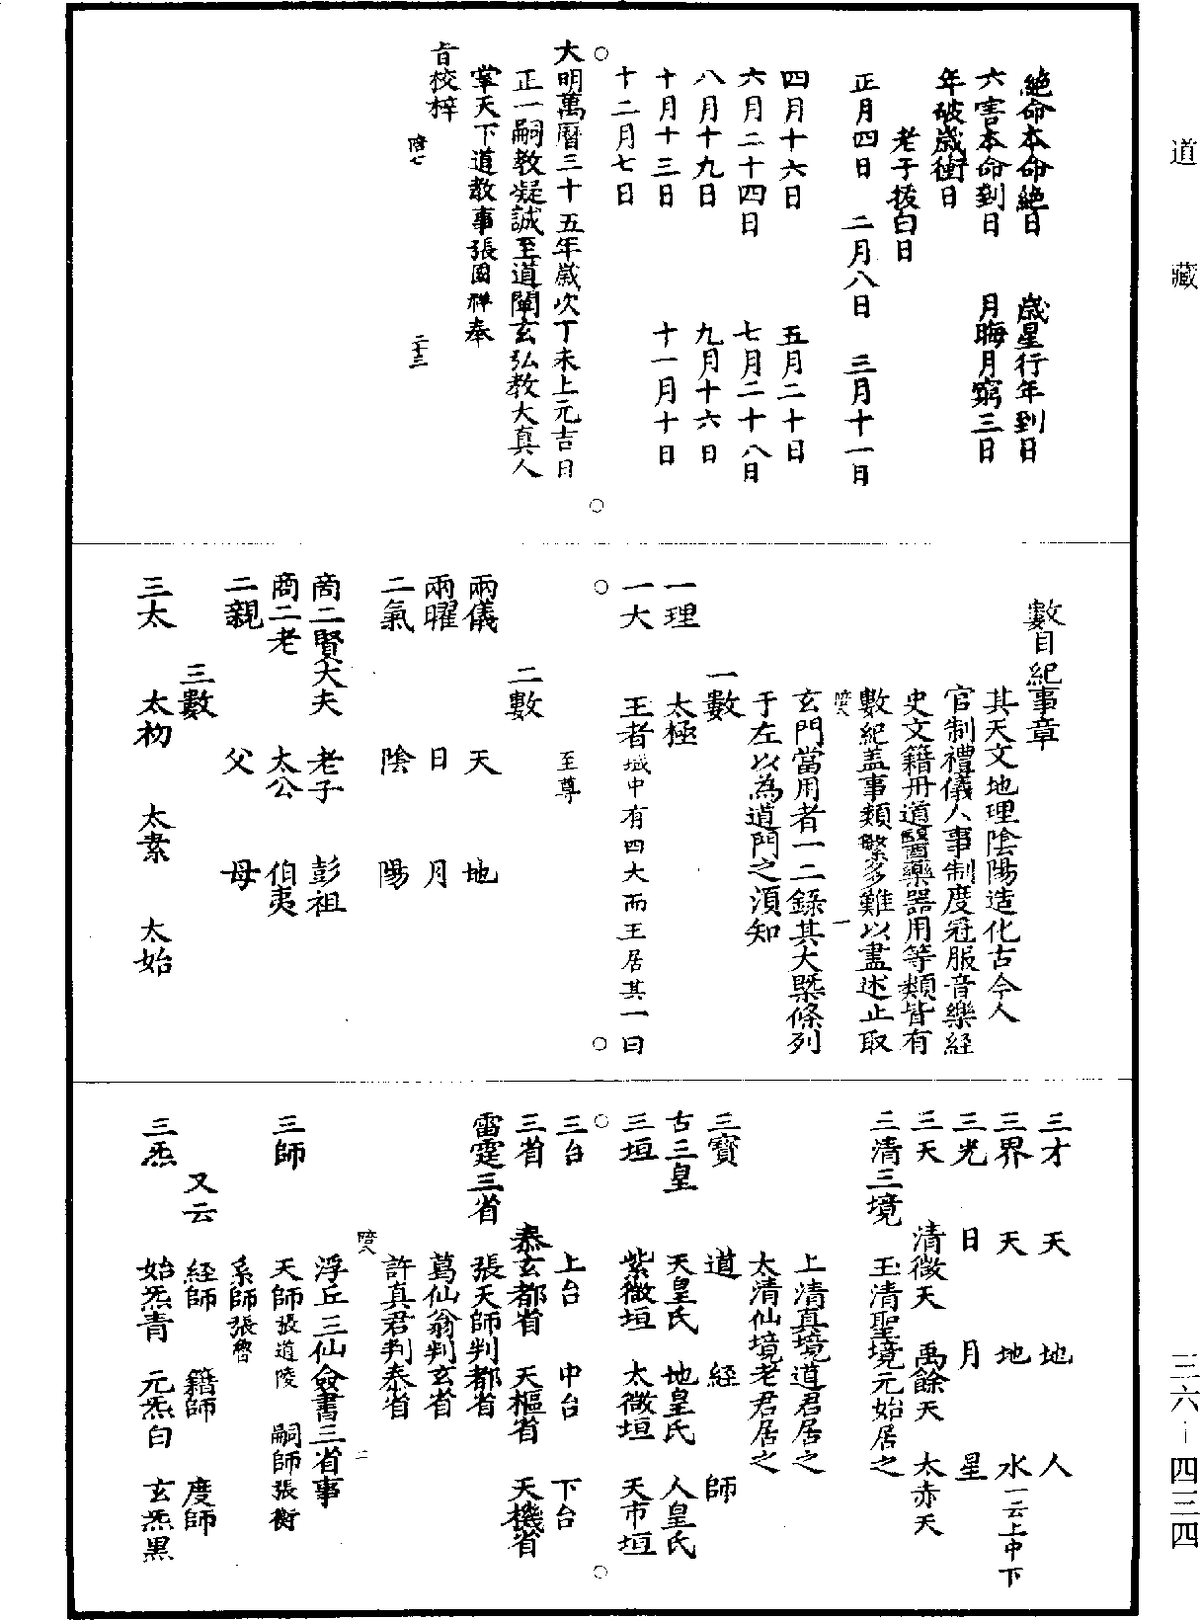 道藏
三六—四三四
絕命本命絕日　歲星行年到日
六害本命到日　月晦月窮三日
年破歲衝日
老子拔白日
正月四日　二月八日　三月十一日
四月十六日　五月二十日
六月二十四日　七月二十八日
八月十九日　九月十六日
十月十三日　十一月十日
十二月七日
大明萬曆三十五年歲次丁未上元吉日
正一嗣教凝誠至道闡玄弘教大真人
掌天下道教事張國祥奉
旨校梓
陪七　二十三
數目紀事章
其天文地理陰陽造化古今人
官制禮儀人事制度冠服音樂經
史文籍冊道醫藥器用等類皆有
數紀蓋事類繁多難以盡述止取
陪八　一
玄門當用者一二錄其大槩條列
于左以為道門之須知
一數
一理　太極
一大　王者域中有四大而王居其一曰
至尊
二數
兩儀　天　地
兩曜　日　月
二氣　陰　陽
商二賢大夫　老子　彭祖
商二老　太公　伯夷
二親　父　母
三數
三太　太初　太素　太始
三才　天　地　人
三界　天　地　水一云上中下
三光　日　月　星
三天　清微天　禹餘天　太赤天
三清三境　玉清聖境元始居之
上清真境道君居之
太清仙境老君居之
三寶　道　經　師
古三皇　天皇氏　地皇氏　人皇氏
三垣　紫微垣　太微垣　天市垣
三台　上台　中台　下台
三省　泰玄都省　天樞省　天機省
雷霆三省　張天師判都省
葛仙翁判玄省
許真君判泰省
陪八　二
浮丘三仙僉書三省事
三師　天師張道陵　嗣師張衡
系師張魯
又云　經師　籍師　度師
三炁　始炁青　元炁白　玄炁黑